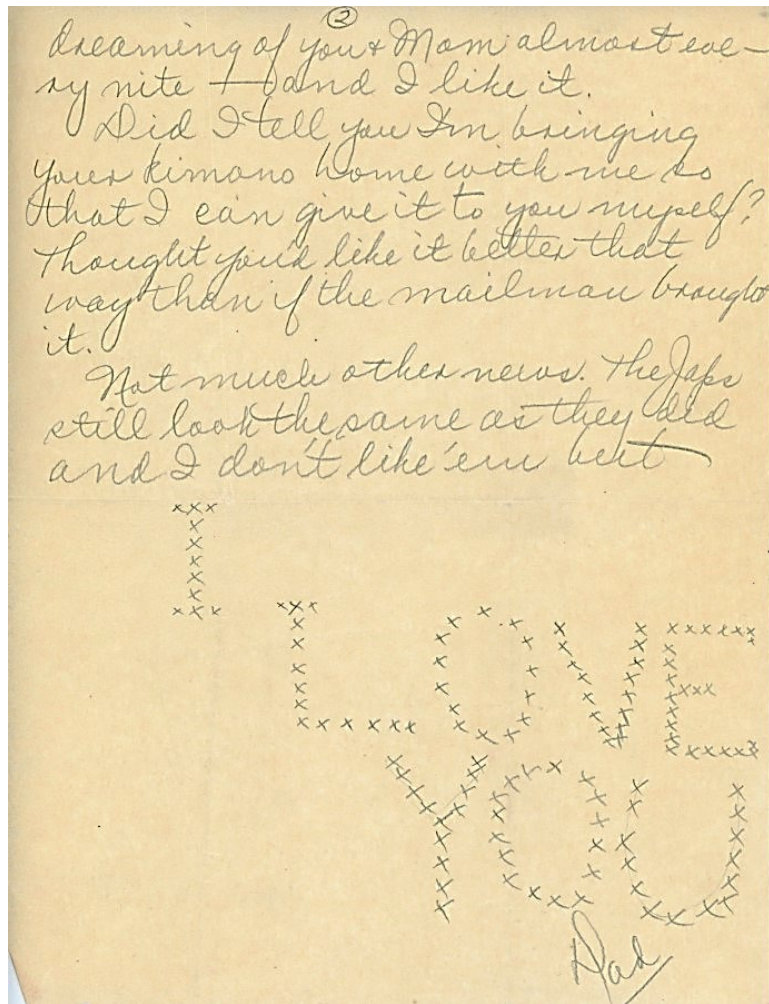 2
dreaming of you & Mom almost eve-
ry nite — and I like it.
Did I tell you I'm bringing
your kimono home with me so
that I can give it to you myself?
Thought you'd like it better that
way than if the mailman brought
it.
Not much other news. The Japs
still look the same as they did
and I don't like 'em but —
I
LOVE
YOU
Dad